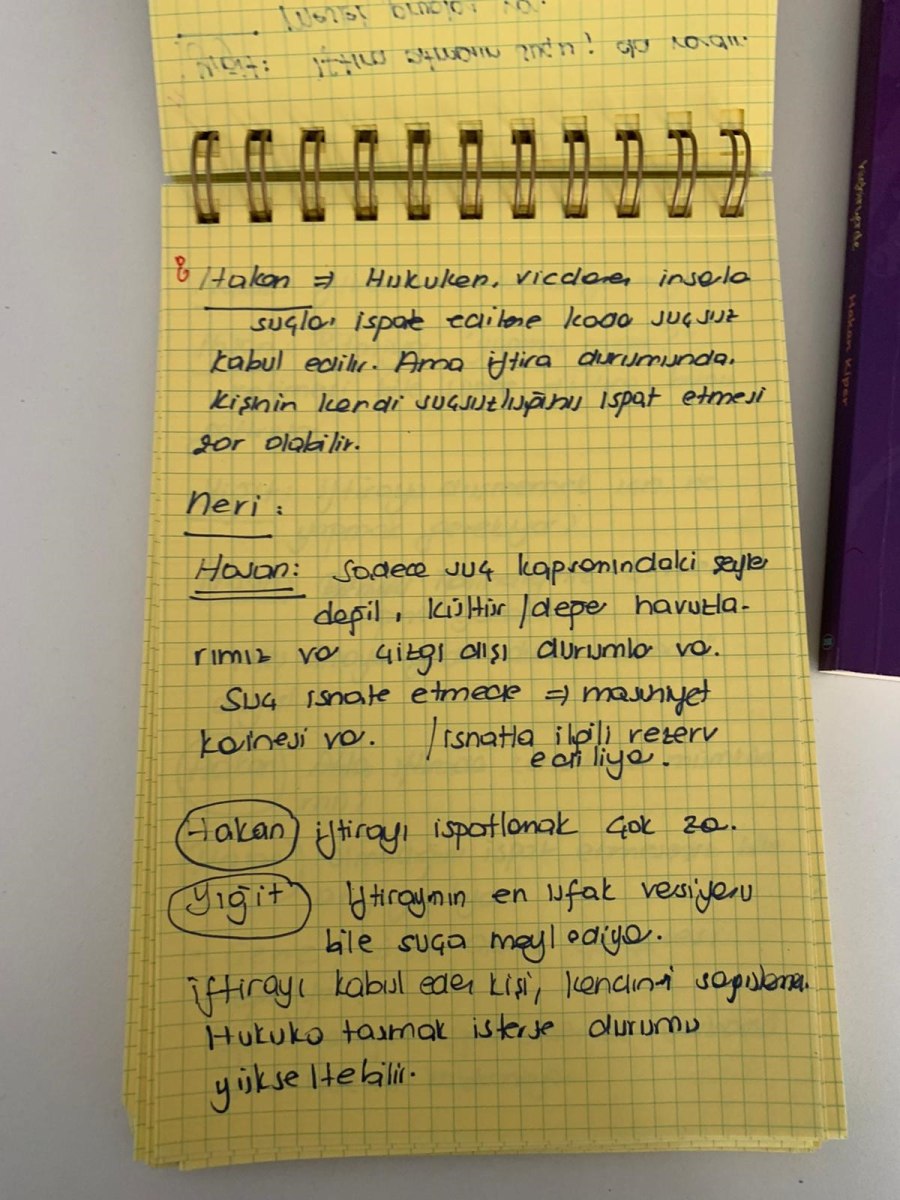 Yiğit: İftira atmanın suçu; da vardır.
8 Hakan ⇒ Hukuken, vicdanen insala
suçla. ispat edilene kada suçsuz
kabul edilir. Ama iftira durumunda.
kişinin kendi suçsuzluğunu ispat etmesi
zor olabilir.
neri:
Hasan: Sadece suç kapsamındaki şeyle
değil, kültür / değe havuzla-
rımız va çizgi dışı durumla va.
Suç isnate etmede ⇒ masuniyet
kaınesi va. / isnatla ilgili rezerv
ediliyo.
Hakan iftirayı ispatlamak çok zo.
Yiğit İftiranının en ufak versiyonu
bile suça meyl ediyo.
iftirayı kabul eden kişi, kendini
Hukuka taşımak isterse durumu
yükseltebilir.
Hakan Kiper